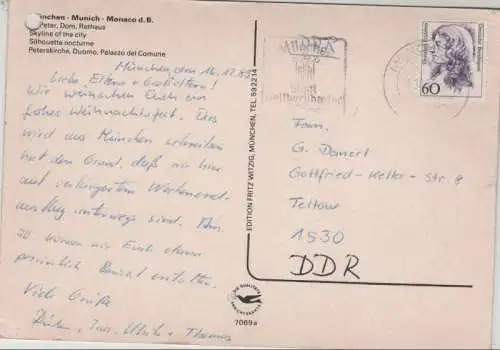 München · Munich · Monaco d. B.
Peter, Dom, Rathaus
Skyline of the city
Silhouette nocturne
Peterskirche, Duomo, Palazzo del Comune
München, den 16.12.89
Liebe Eltern + Großeltern!
Wir wünschen Euch ein
frohes Weihnachtsfest. Das
wir aus München schreiben
hat den Grund, daß wir hier
auf verlängertem Wochenend-
ausflug unterwegs sind. Am
können wir Euch einen
persönlich erstatten.
Viele Grüße
Ulrike + Thomas
EDITION FRITZ WITZIG, MÜNCHEN, TEL. 592214
7069a
DEUTSCHE BUNDESPOST
60
Fam.
G. Damert
Gottfried-Keller-Str. 8
Teltow
1530
DDR